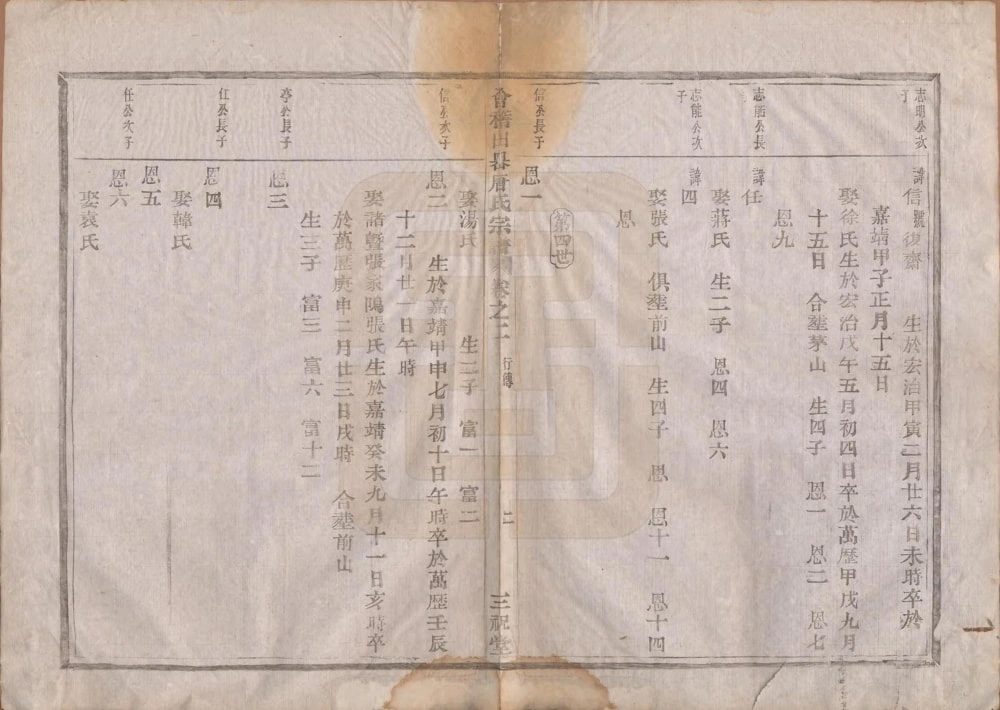 志聰公次子
諱信號復齋 生於宏治甲寅二月廿六日未時卒於
嘉靖甲子正月十五日
娶徐氏生於宏治戊午五月初四日卒於萬歷甲戌九月
十五日 合塟茅山 生四子 恩一 恩二 恩七
恩九
志能公長
諱任
娶蔣氏 生二子 恩四 恩六
志能公次子
諱四
娶張氏 俱塟前山 生四子 恩 恩十一 恩十四
恩
第四世
信公長子
恩一
會稽由縣唐氏宗譜 卷之二 行傳 二 三祝堂
娶湯氏 生二子 富一 富二
信公次子
恩二 生於嘉靖甲申七月初十日午時卒於萬歷壬辰
十二月廿一日午時
娶諸暨張家隖張氏生於嘉靖癸未九月十一日亥時卒
於萬歷庚申二月廿三日戌時 合塟前山
生三子 富三 富六 富十二
亭公長子
恩三
任公長子
恩四
娶韓氏
恩五
任公次子
恩六
娶袁氏